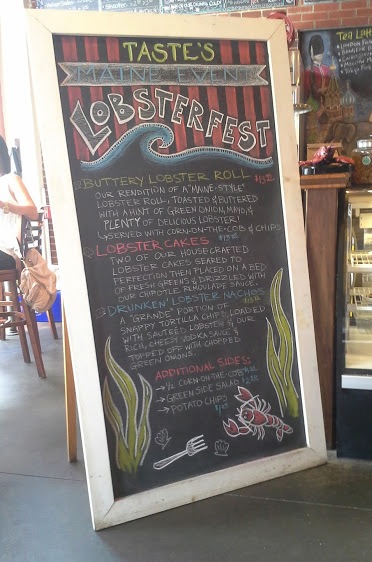 TASTE'S
MAINE EVENT
LOBSTERFEST
BUTTERY LOBSTER ROLL
OUR RENDITION OF A "MAINE-STYLE"
LOBSTER ROLL, TOASTED & BUTTERED
WITH A HINT OF GREEN ONION, MAYO, &
PLENTY OF DELICIOUS LOBSTER!
SERVED WITH CORN-ON-THE-COB & CHIPS
LOBSTER CAKES
TWO OF OUR HOUSECRAFTED
LOBSTER CAKES SEARED TO
PERFECTION THEN PLACED ON A BED
OF FRESH GREENS & DRIZZLED WITH
OUR CHIPOTLE REMOULADE SAUCE.
'DRUNKEN' LOBSTER NACHOS
A "GRANDE" PORTION OF
SNAPPY TORTILLA CHIPS, LOADED
WITH SAUTEED LOBSTER & OUR
RICH, CHEESY VODKA SAUCE &
TOPPED OFF WITH CHOPPED
GREEN ONIONS.
ADDITIONAL SIDES:
→ 1/2 CORN-ON-THE-COB
→ GREEN SIDE SALAD
→ POTATO CHIPS